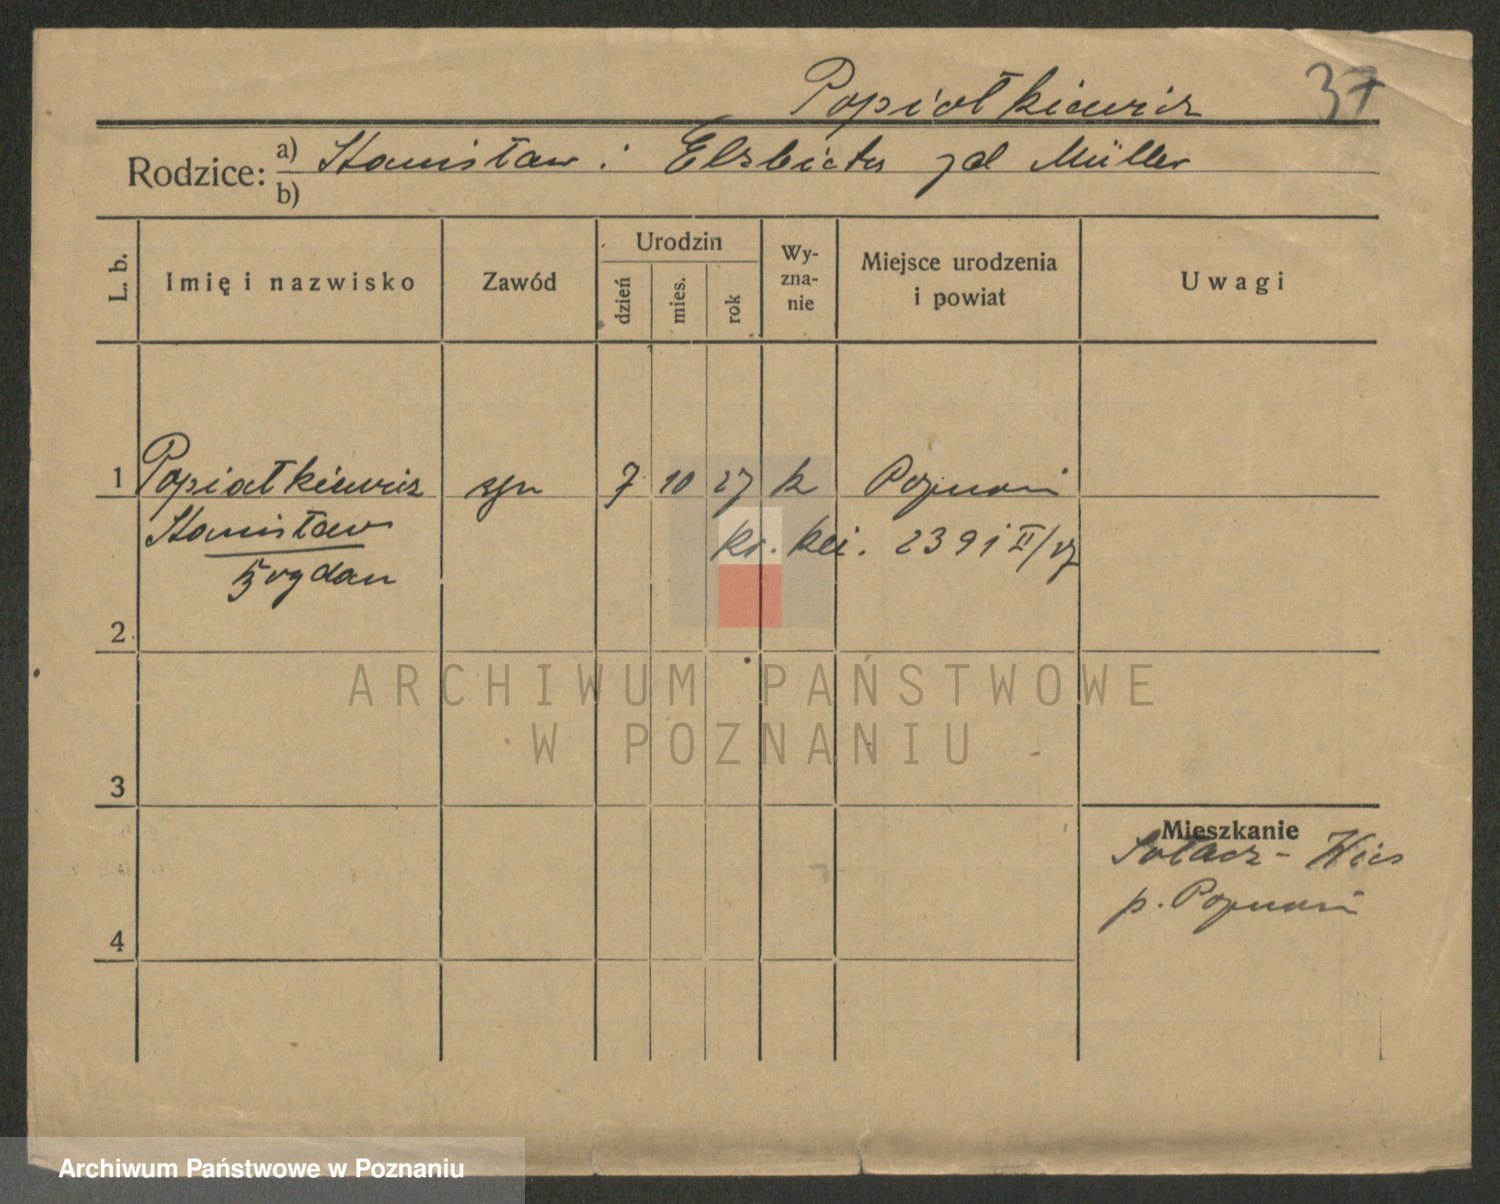 Popiołkiewicz 37
Rodzice: a) Stanisław i Elżbieta zd Müller
b)
L. b. Imię i nazwisko Zawód Urodzin dzień mies. rok Wy-zna-nie Miejsce urodzenia i powiat Uwagi
1 Popiołkiewicz syn 7 10 27 k Poznań
Stanisław kr. kei. 2391 II/27
Bogdan
2
ARCHIWUM PAŃSTWOWE
W POZNANIU
3
Mieszkanie
Sołacz - Wieś
p. Poznań
4
Archiwum Państwowe w Poznaniu